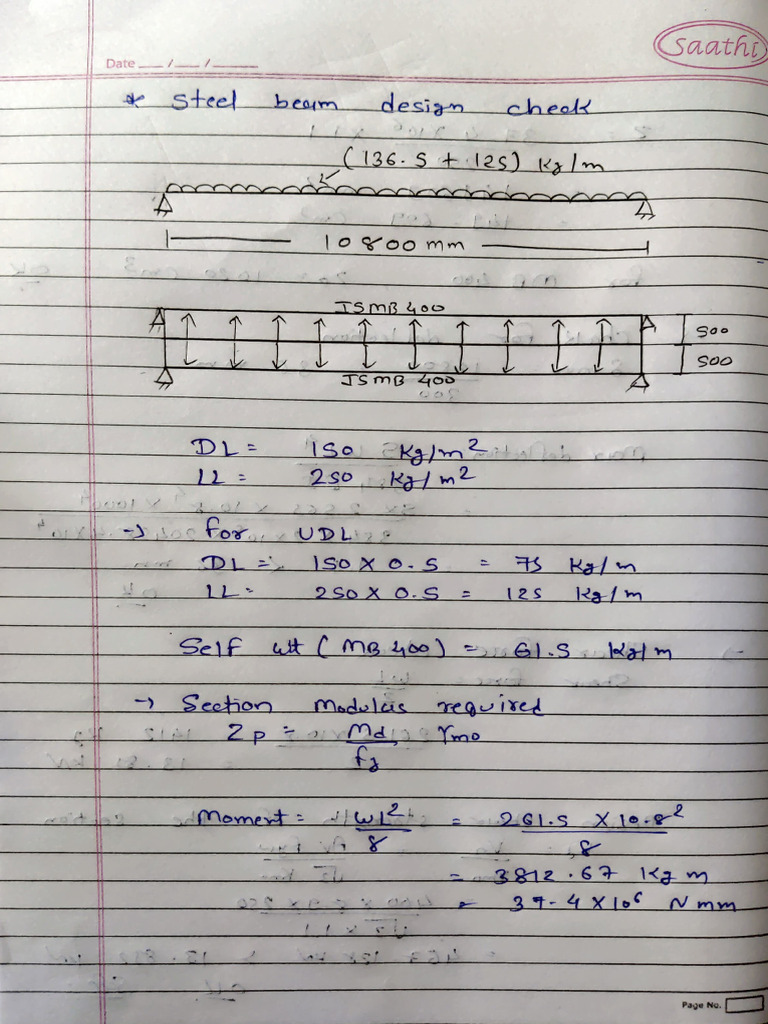 saathi
Date __/__/____
* Steel beam design check
(136.5 + 125) Kg/m
10800 mm
ISMB 400
500
500
ISMB 400
DL = 150 Kg/m²
LL = 250 Kg/m²
→ for UDL
DL = 150 X 0.5 = 75 Kg/m
LL = 250 X 0.5 = 125 Kg/m
Self wt ( MB 400 ) = 61.5 Kg/m
→ Section Modulus required
Zp = Md/fy γmo
Moment = wl²/8 = 261.5 X 10.8²/8
= 3812.67 Kg m
= 37.4 X 10⁶ N mm
Page No.